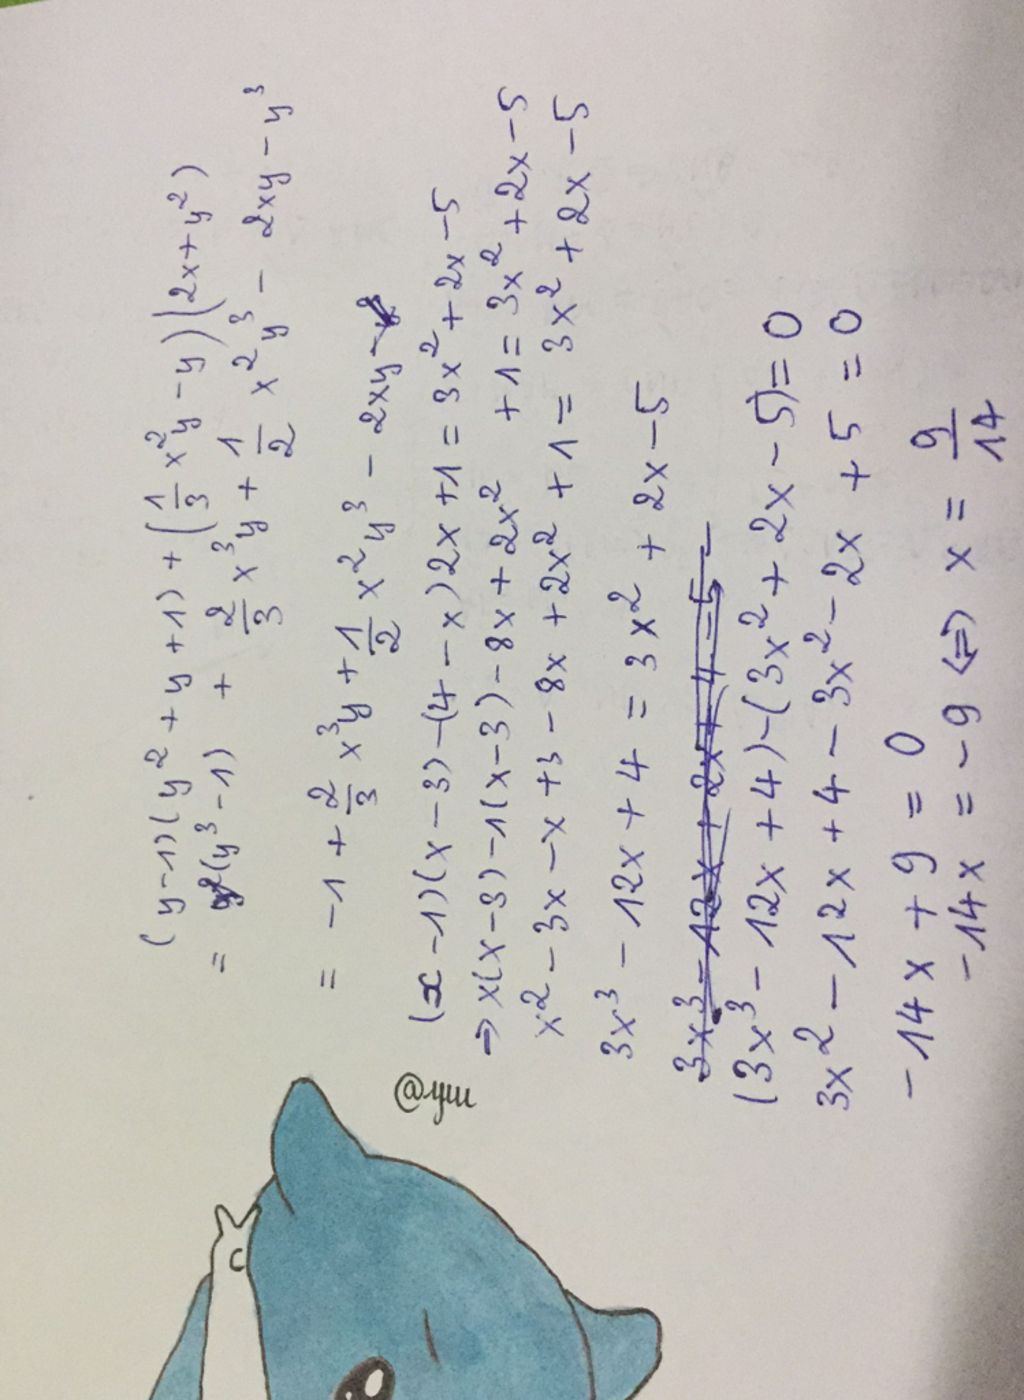 (y-1)(y² + y + 1) + (1/3 x²y - y)(2x + y²)
= (y³ - 1) + 2/3 x³y + 1/2 x²y³ - 2xy - y³
= -1 + 2/3 x³y + 1/2 x²y³ - 2xy
(x - 1)(x - 3) - (4 - x)2x + 1 = 3x² + 2x - 5
⇒ x(x - 3) - 1(x - 3) - 8x + 2x² + 1 = 3x² + 2x - 5
x² - 3x - x + 3 - 8x + 2x² + 1 = 3x² + 2x - 5
3x³ - 12x + 4 = 3x² + 2x - 5
3x³ - 12x + 2x + 4 - 5 -
(3x³ - 12x + 4) - (3x² + 2x - 5) = 0
3x² - 12x + 4 - 3x² - 2x + 5 = 0
-14x + 9 = 0
-14x = -9 ⇔ x = 9/14
@yu